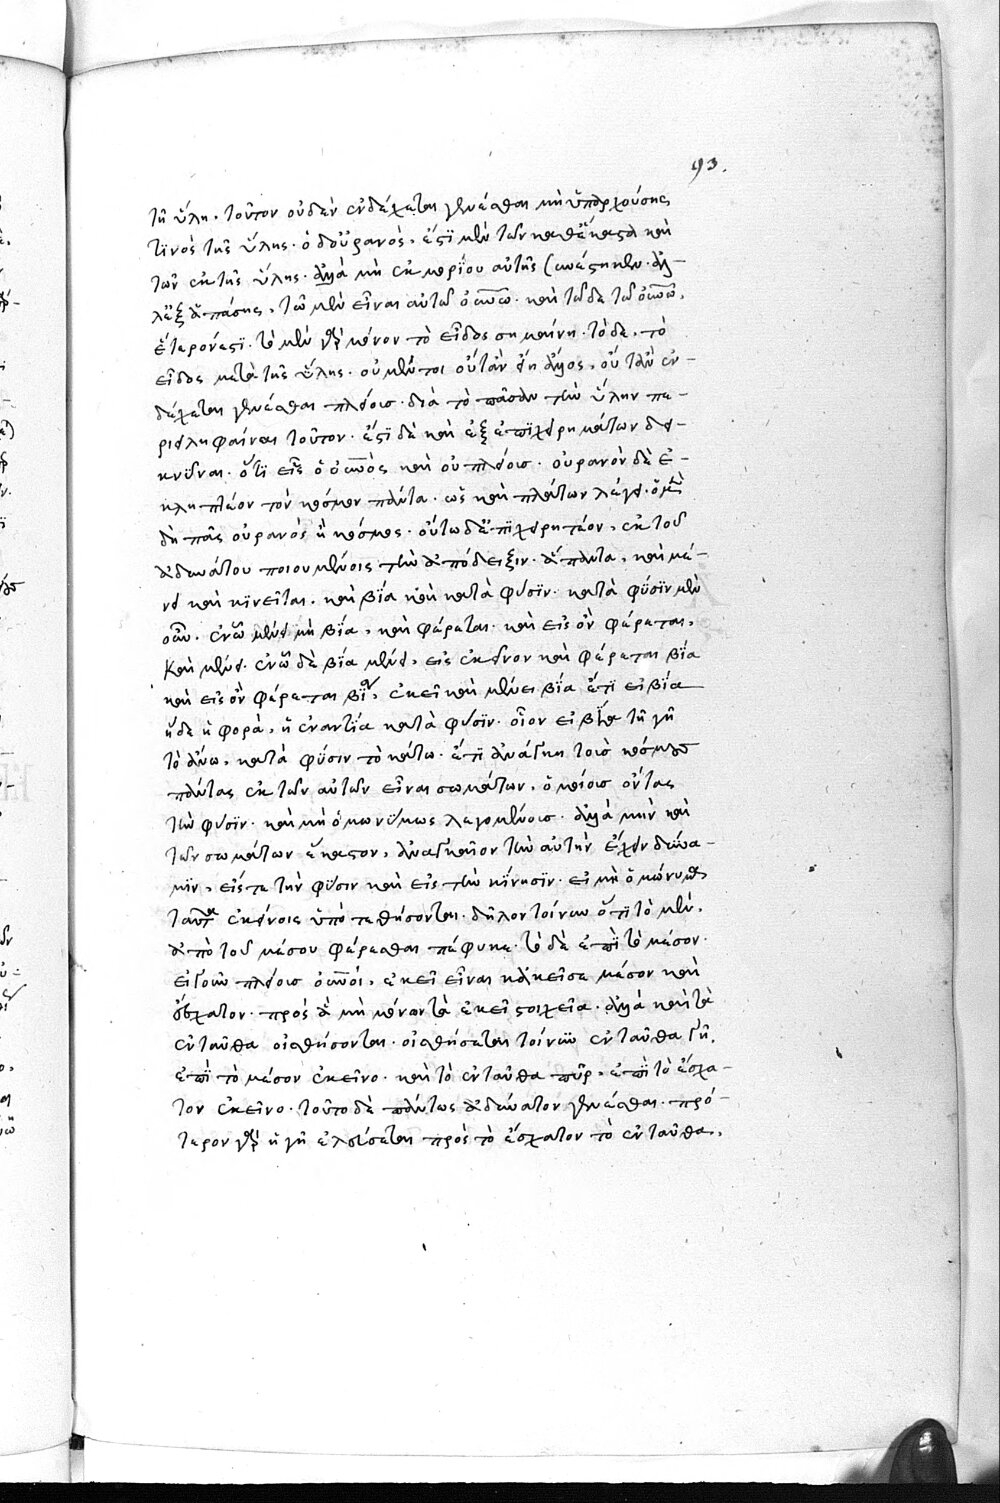 93.
τῆ ὕλη. τοῦτον οὐδὲν ἐνδέχεται γενέσθαι μὴ ὑπαρχούσης
τινὸς τῆς ὕλης. ὁ δ' οὐρανὸς, ἐστὶ μὲν τῶν καθέκαστα καὶ
τῶν ἐκ τῆς ὕλης. ἀλλὰ μὴ ἐκ μορίου αὐτῆς συνέστηκεν. ἀλ-
λ' ἐξ ἁπάσης, τῶ μὲν εἶναι αὐτῶ οὐνῶ. καὶ τῶδε τῶ οὐνῶ,
ἕτερόν ἐστι. τὸ μὲν γὰρ μόνον τὸ εἶδος σημαίνη. τὸ δε, τὸ
εἶδος μετὰ τῆς ὕλης. οὐ μέντοι οὔτ' ἂν ἔη ἄλλος, οὔτ' ἂν ἐν-
δέχεται γενέσθαι πλείους. διὰ τὸ πᾶσαν τὴν ὕλην πε-
ριειληφαίναι τοῦτον. ἔστι δὲ καὶ ἐξ ἐπιχειρημάτων δει-
κνῦναι. ὅτι εἷς ὁ οὐνὸς καὶ οὐ πλείους. οὐρανὸν δὲ ἐ-
κληπτέον τὸν κόσμον πάντα. ὡς καὶ πλάτων λέγει. ὁ μὲν
δὴ πᾶς οὐρανὸς ἢ κόσμος. οὕτω δ' ἐπιχειρητέον, ἐκ τοῦ
ἀδυνάτου ποιουμένοις τὴν ἀπόδειξιν. ἅπαντα, καὶ μέ-
νει καὶ κινεῖται. καὶ βία καὶ κατὰ φύσιν. κατὰ φύσιν μὲν
οὖν. ἐν ὧ μένει μὴ βία, καὶ φέρεται. καὶ εἰς ὃν φέρεται,
καὶ μένει. ἐν ὧ δὲ βία μένει, εἰς ἐκεῖνον καὶ φέρεται βία
καὶ εἰς ὃν φέρεται βία, ἐκεῖ καὶ μένει βία ἔτι εἰ βία
ἥδε ἡ φορὰ, ἡ ἐναντία κατὰ φύσιν. οἷον εἰ βία τῆ γῆ
τὸ ἄνω, κατὰ φύσιν τὸ κάτω. ἔτι ἀνάγκη τοὺς κόσμους
πάντας ἐκ τῶν αὐτῶν εἶναι σωμάτων, ὁμοίους ὄντας
τὴν φύσιν. καὶ μὴ ὁμωνύμως λεγομένους. ἀλλὰ μὴν καὶ
τῶν σωμάτων ἕκαστον, ἀναγκαῖον τὴν αὐτὴν ἔχειν δύνα-
μιν, εἴς τε τὴν φύσιν καὶ εἰς τὴν κίνησιν. εἰ μὴ ὁμώνυμα
ταῦτα ἐκείνοις ὑποτεθήσονται. δῆλον τοίνυν ὅτι τὸ μὲν,
ἀπὸ τοῦ μέσου φέρεσθαι πέφυκε. τὸ δὲ ἐπὶ τὸ μέσον.
εἰ γοῦν πλείους οὐνοί, ἐκεῖ εἶναι κἀκεῖσε μέσον καὶ
ἔσχατον. πρὸς ἃ μὴ μόνον τὰ ἐκεῖ στοιχεῖα. ἀλλὰ καὶ τὰ
ἐνταῦθα οἰσθήσονται. οἰσθήσεται τοίνυν ἐνταῦθα γῆ,
ἐπὶ τὸ μέσον ἐκεῖνο. καὶ τὸ ἐνταῦθα πῦρ, ἐπὶ τὸ ἔσχα-
τον ἐκεῖνο. τοῦτο δὲ πάντως ἀδύνατον γενέσθαι. πρό-
τερον γὰρ ἡ γῆ ἐλεύσεται πρὸς τὸ ἔσχατον τὸ ἐνταῦθα,